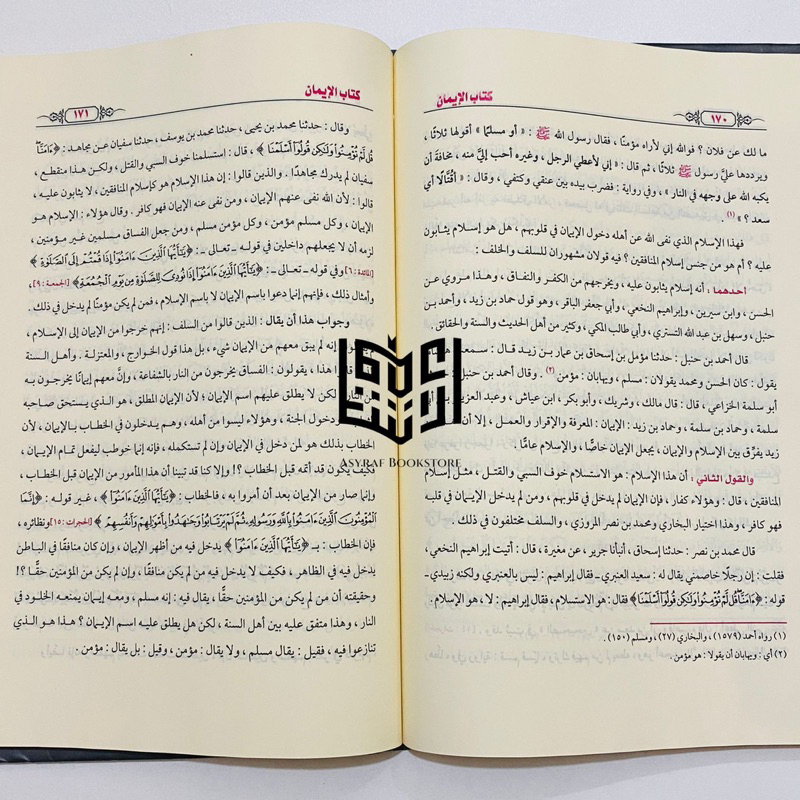 كتاب الإيمان
١٧٠
ما لك عن فلان ؟ فوالله إني لأراه مؤمنًا ، فقال رسول الله ﷺ : « أو مسلمًا » أقولها ثلاثًا ،
ويرددها عليَّ رسول ﷺ ثلاثًا ، ثم قال : « إني لأعطي الرجل ، وغيره أحب إليَّ منه ، مخافة أن
يكبه الله على وجهه في النار » ، وفي رواية : فضرب بيده بين عنقي وكتفي ، وقال : « أقتالًا أي
سعد ؟ » (١).
فهذا الإسلام الذي نفى الله عن أهله دخول الإيمان في قلوبهم ، هل هو إسلام يثابون
عليه ؟ أم هو من جنس إسلام المنافقين ؟ فيه قولان مشهوران للسلف والخلف :
أحدهما : أنه إسلام يثابون عليه ، ويخرجهم من الكفر والنفاق ، وهذا مروي عن
الحسن ، وابن سيرين ، وإبراهيم النخعي ، وأبي جعفر الباقر ، وهو قول حماد بن زيد ، وأحمد بن
حنبل ، وسهل بن عبد الله التستري ، وأبي طالب المكي ، وكثير من أهل الحديث والسنة والحقائق .
قال أحمد بن حنبل : حدثنا مؤمل بن إسحاق بن عمار بن زيد قال : سمعت هشامًا
يقول : كان الحسن ومحمد يقولان : مسلم ، ويهابان : مؤمن (٢) . وقال أحمد بن حنبل :
أبو سلمة الخزاعي ، قال : قال مالك ، وشريك ، وأبو بكر ، ابن عياش ، وعبد العزيز بن أبي
سلمة ، وحماد بن سلمة ، وحماد بن زيد : الإيمان : المعرفة والإقرار والعمل ، إلا أن
زيد يفرِّق بين الإسلام والإيمان ، يجعل الإيمان خاصًّا ، والإسلام عامًّا .
والقول الثاني : أن هذا الإسلام : هو الاستسلام خوف السبي والقتل ، مثل إسلام
المنافقين ، قال : وهؤلاء كفار ، فإن الإيمان لم يدخل في قلوبهم ، ومن لم يدخل الإيمان في قلبه
فهو كافر ، وهذا اختيار البخاري ومحمد بن نصر المروزي ، والسلف مختلفون في ذلك .
قال محمد بن نصر : حدثنا إسحاق ، أنبأنا جرير ، عن مغيرة ، قال : أتيت إبراهيم النخعي ،
فقلت : إن رجلًا خاصمني يقال له : سعيد العنبري ـ فقال إبراهيم : ليس بالعنبري ولكنه زبيدي ـ
قوله : ﴿ءَامَنَّا قُل لَّمْ تُؤْمِنُوا وَلَٰكِن قُولُوا أَسْلَمْنَا﴾ فقال : هو الاستسلام ، فقال إبراهيم : لا ، هو الإسلام .
(١) رواه أحمد (١٥٧٩) ، والبخاري (٢٧) ، ومسلم (١٥٠) .
(٢) أي : ويهابان أن يقولا : هو مؤمن .
كتاب الإيمان
١٧١
وقال : حدثنا محمد بن يحيى ، حدثنا محمد بن يوسف ، حدثنا سفيان عن مجاهد : ﴿ءَامَنَّا
قُل لَّمْ تُؤْمِنُوا وَلَٰكِن قُولُوا أَسْلَمْنَا﴾ ، قال : استسلمنا خوف السبي والقتل ، ولكن هذا منقطع ،
سفيان لم يدرك مجاهدًا . والذين قالوا : إن هذا الإسلام هو كإسلام المنافقين ، لا يثابون عليه ،
قالوا : لأن الله نفى عنهم الإيمان ، ومن نفى عنه الإيمان فهو كافر . وقال هؤلاء : الإسلام هو
الإيمان ، وكل مؤمن مسلم ، وكل مسلم مؤمن ، ومن جعل الفساق مسلمين غير مؤمنين ،
لزمه أن لا يجعلهم داخلين في قوله ـ تعالى ـ : ﴿يَٰأَيُّهَا الَّذِينَ ءَامَنُوا إِذَا قُمْتُمْ إِلَى الصَّلَوٰةِ﴾
[المائدة : ٦] وفي قوله ـ تعالى ـ : ﴿يَٰأَيُّهَا الَّذِينَ ءَامَنُوا إِذَا نُودِيَ لِلصَّلَوٰةِ مِن يَوْمِ الْجُمُعَةِ﴾ [الجمعة : ٩]
وأمثال ذلك ، فإنهم إنما دعوا باسم الإيمان لا باسم الإسلام ، فمن لم يكن مؤمنًا لم يدخل في ذلك .
وجواب هذا أن يقال : الذين قالوا من السلف : إنهم خرجوا من الإيمان إلى الإسلام ،
لم يقولوا : إنه لم يبق معهم من الإيمان شيء ، بل هذا قول الخوارج ، والمعتزلة . وأهل السنة
الذين قالوا هذا ، يقولون : الفساق يخرجون من النار بالشفاعة ، وإن معهم إيمانًا يخرجون به
من النار ، لكن لا يطلق عليهم اسم الإيمان ؛ لأن الإيمان المطلق ، هو الذي يستحق صاحبه
ودخول الجنة ، وهؤلاء ليسوا من أهله ، وهم يدخلون في الخطاب بالإيمان ، لأن
الخطاب بذلك هو لمن دخل في الإيمان وإن لم يستكمله ، فإنه إنما خوطب ليفعل تمام الإيمان ،
فكيف يكون قد أتمه قبل الخطاب ؟! وإلا كنا قد تبينا أن هذا المأمور من الإيمان قبل الخطاب ،
وإنما صار من الإيمان بعد أن أمروا به ، فالخطاب : ﴿يَٰأَيُّهَا الَّذِينَ ءَامَنُوا﴾ ، غير قوله : ﴿إِنَّمَا
الْمُؤْمِنُونَ الَّذِينَ ءَامَنُوا بِاللَّهِ وَرَسُولِهِ ثُمَّ لَمْ يَرْتَابُوا وَجَٰهَدُوا بِأَمْوَٰلِهِمْ وَأَنفُسِهِمْ﴾ [الحجرات : ١٥] ونظائره ،
فإن الخطاب : بـ ﴿يَٰأَيُّهَا الَّذِينَ ءَامَنُوا﴾ يدخل فيه من أظهر الإيمان ، وإن كان منافقًا في الباطن
يدخل فيه في الظاهر ، فكيف لا يدخل فيه من لم يكن منافقًا ، وإن لم يكن من المؤمنين حقًّا ؟!
وحقيقته أن من لم يكن من المؤمنين حقًّا ، يقال فيه : إنه مسلم ، ومعه إيمان يمنعه الخلود في
النار ، وهذا متفق عليه بين أهل السنة ، لكن هل يطلق عليه اسم الإيمان ؟ هذا هو الذي
تنازعوا فيه ، فقيل : يقال مسلم ، ولا يقال : مؤمن ، وقيل : بل يقال : مؤمن .
ASYRAF BOOKSTORE